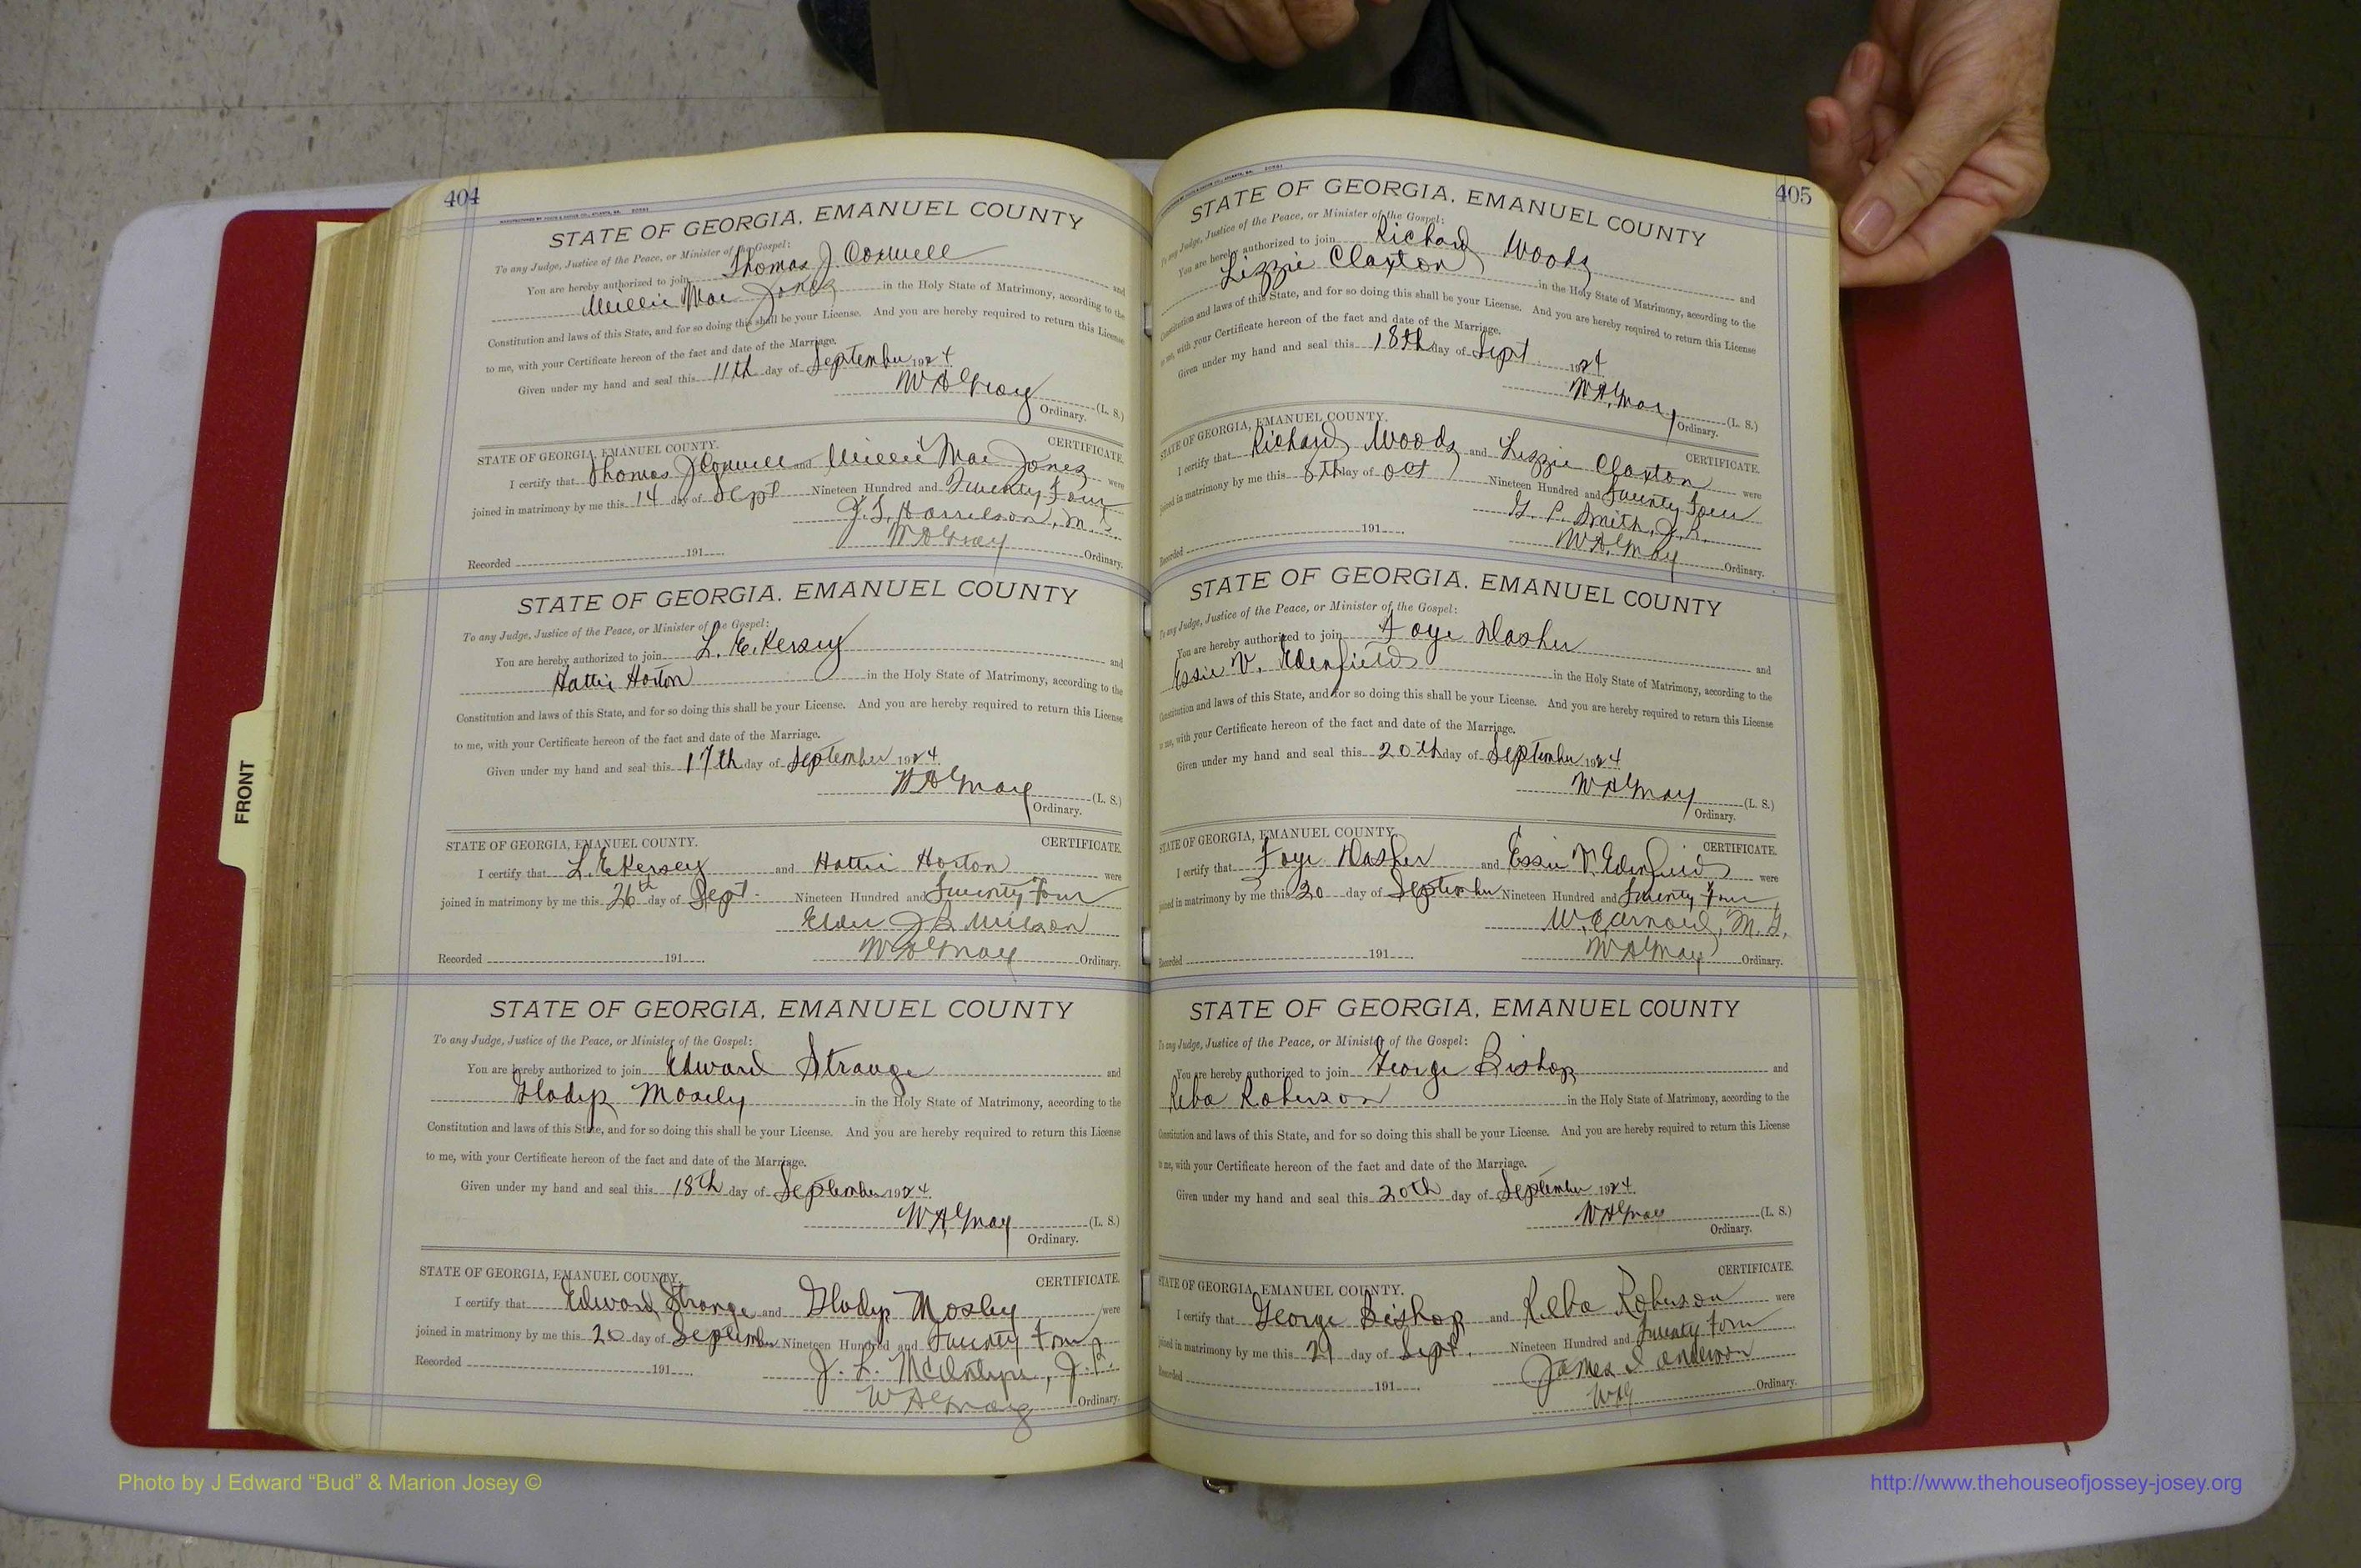 404
STATE OF GEORGIA, EMANUEL COUNTY
To any Judge, Justice of the Peace, or Minister of the Gospel:
You are hereby authorized to join Thomas J. Coxwell and
Millie Mae Jones in the Holy State of Matrimony, according to the
Constitution and laws of this State, and for so doing this shall be your License. And you are hereby required to return this License
to me, with your Certificate hereon of the fact and date of the Marriage.
Given under my hand and seal this 11th day of September 1924
(L. S.)
Ordinary.
STATE OF GEORGIA, EMANUEL COUNTY. CERTIFICATE.
I certify that Thomas J Coxwell and Millie Mae Jones were
joined in matrimony by me this 14 day of Sept Nineteen Hundred and Twenty Four
J. S. Harrelson, M. G.
Recorded 191 Ordinary.
STATE OF GEORGIA, EMANUEL COUNTY
To any Judge, Justice of the Peace, or Minister of the Gospel:
You are hereby authorized to join L. E. Kersey and
Hattie Horton in the Holy State of Matrimony, according to the
Constitution and laws of this State, and for so doing this shall be your License. And you are hereby required to return this License
to me, with your Certificate hereon of the fact and date of the Marriage.
Given under my hand and seal this 17th day of September 1924
(L. S.)
Ordinary.
STATE OF GEORGIA, EMANUEL COUNTY. CERTIFICATE.
I certify that L. E Kersey and Hattie Horton were
joined in matrimony by me this 26th day of Sept. Nineteen Hundred and Twenty Four
Elder J B Wilson
Recorded 191 Ordinary.
STATE OF GEORGIA, EMANUEL COUNTY
To any Judge, Justice of the Peace, or Minister of the Gospel:
You are hereby authorized to join Edward Strange and
Gladys Mosely in the Holy State of Matrimony, according to the
Constitution and laws of this State, and for so doing this shall be your License. And you are hereby required to return this License
to me, with your Certificate hereon of the fact and date of the Marriage.
Given under my hand and seal this 18th day of September 1924.
(L. S.)
Ordinary.
STATE OF GEORGIA, EMANUEL COUNTY. CERTIFICATE.
I certify that Edward Strange and Gladys Mosley were
joined in matrimony by me this 20 day of September Nineteen Hundred and Twenty Four
Recorded 191 J. L. McIntyre, J. P.
Ordinary.
405
STATE OF GEORGIA, EMANUEL COUNTY
To any Judge, Justice of the Peace, or Minister of the Gospel:
You are hereby authorized to join Richard Woods and
Lizzie Claxton in the Holy State of Matrimony, according to the
Constitution and laws of this State, and for so doing this shall be your License. And you are hereby required to return this License
to me, with your Certificate hereon of the fact and date of the Marriage.
Given under my hand and seal this 18th day of Sept 1924
(L. S.)
Ordinary.
STATE OF GEORGIA, EMANUEL COUNTY. CERTIFICATE.
I certify that Richard Woods and Lizzie Claxton were
joined in matrimony by me this 8th day of Oct Nineteen Hundred and Twenty Four
G. P. Smith, J. P.
Recorded 191 Ordinary.
STATE OF GEORGIA, EMANUEL COUNTY
To any Judge, Justice of the Peace, or Minister of the Gospel:
You are hereby authorized to join Foye Dasher and
Essie V. Edenfield in the Holy State of Matrimony, according to the
Constitution and laws of this State, and for so doing this shall be your License. And you are hereby required to return this License
to me, with your Certificate hereon of the fact and date of the Marriage.
Given under my hand and seal this 20th day of September 1924
(L. S.)
Ordinary.
STATE OF GEORGIA, EMANUEL COUNTY. CERTIFICATE.
I certify that Foye Dasher and Essie V. Edenfield were
joined in matrimony by me this 20 day of September Nineteen Hundred and Twenty Four
W. E. Arnold, M. G.
Recorded 191 Ordinary.
STATE OF GEORGIA, EMANUEL COUNTY
To any Judge, Justice of the Peace, or Minister of the Gospel:
You are hereby authorized to join George Bishop and
Reba Roberson in the Holy State of Matrimony, according to the
Constitution and laws of this State, and for so doing this shall be your License. And you are hereby required to return this License
to me, with your Certificate hereon of the fact and date of the Marriage.
Given under my hand and seal this 20th day of September 1924
(L. S.)
Ordinary.
STATE OF GEORGIA, EMANUEL COUNTY. CERTIFICATE.
I certify that George Bishop and Reba Roberson were
joined in matrimony by me this 21 day of Sept. Nineteen Hundred and Twenty Four
James I Anderson
Recorded 191 Ordinary.
FRONT
Photo by J Edward “Bud” & Marion Josey ©
http://www.thehouseofjossey-josey.org